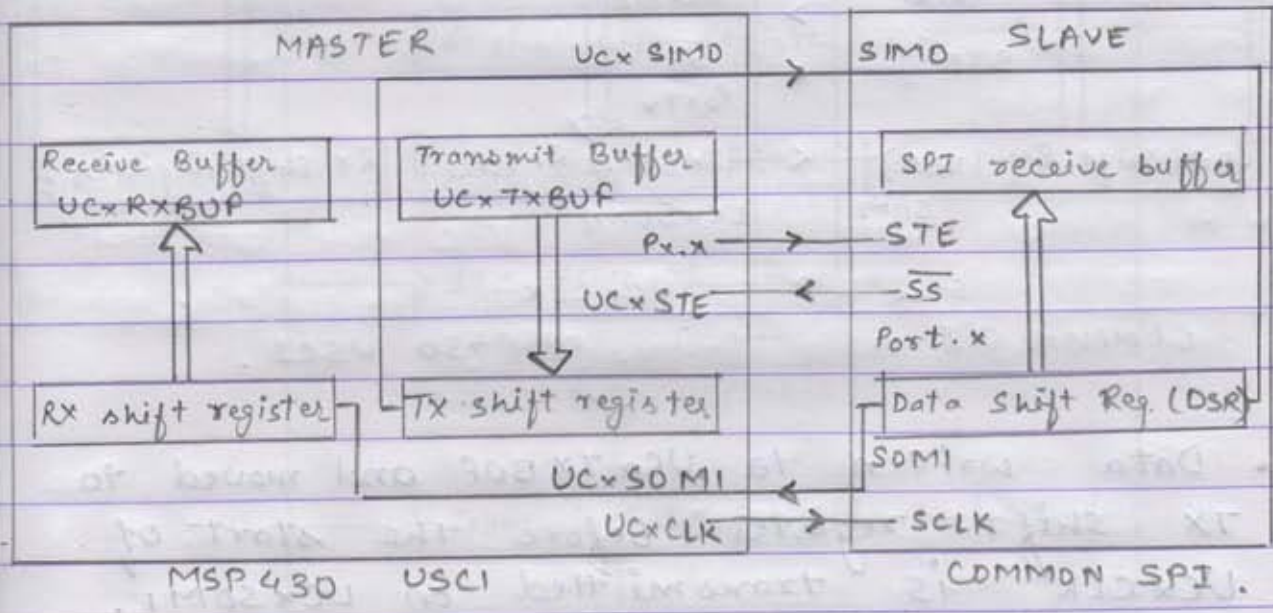 MASTER
SLAVE
UCx SIMO
SIMO
Receive Buffer
UCxRXBUF
Transmit Buffer
UCxTXBUF
SPI receive buffer
Px.x
STE
UCxSTE
SS
Port.x
RX shift register
TX shift register
Data Shift Reg. (DSR)
UCxSOMI
SOMI
UCxCLK
SCLK
MSP430 USCI
COMMON SPI.